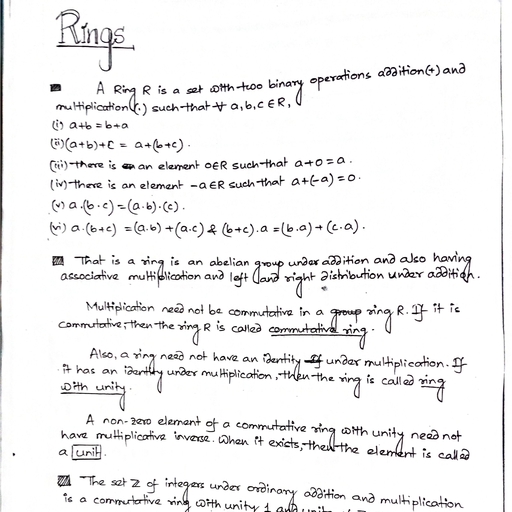 Rings
A Ring R is a set with two binary operations addition(+) and
multiplication(.) such that ∀ a,b,c ∈ R,
(i) a+b = b+a
(ii) (a+b)+c = a+(b+c).
(iii) there is an element 0∈R such that a+0 = a.
(iv) there is an element -a∈R such that a+(-a) = 0.
(v) a.(b.c) = (a.b).(c).
(vi) a.(b+c) = (a.b)+(a.c) & (b+c).a = (b.a)+(c.a).
That is a ring is an abelian group under addition and also having
associative multiplication and left and right distribution under addition.
Multiplication need not be commutative in a group ring R. If it is
commutative, then the ring R is called commutative ring.
Also, a ring need not have an identity If under multiplication. If
it has an identity under multiplication, then the ring is called ring
with unity.
A non-zero element of a commutative ring with unity need not
have multiplicative inverse. When it exists, then the element is called
a unit.
The set Z of integers under ordinary addition and multiplication
is a commutative ring with unity 1 and